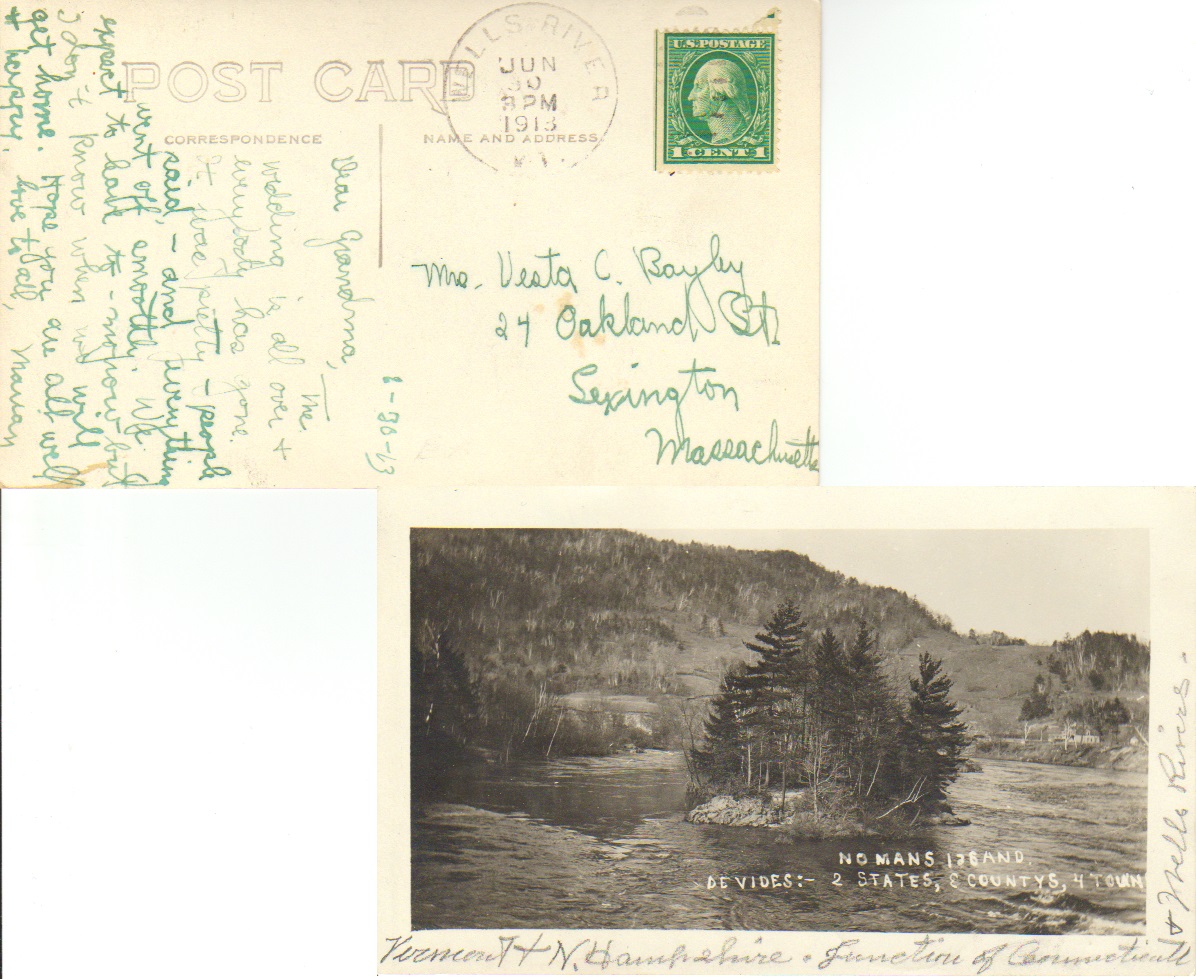 POST CARD
CORRESPONDENCE
NAME AND ADDRESS
WELLS RIVER
JUN
30
3 PM
1913
VT.
U.S. POSTAGE
1 CENT 1
6-30-13
Dear Grandma,
The
wedding is all over +
everybody has gone.
It was pretty - people
said, - and everything
went off smoothly. We
expect to leave to-morrow but
I don't know when we will
get home. Hope you are all well
+ happy.
love to all,
Marian
Mrs. Vesta C. Bayley
24 Oakland St.
Lexington
Massachusetts
NO MANS ISLAND.
DEVIDES:- 2 STATES, 2 COUNTYS, 4 TOWN
Vermont + N. Hampshire. Junction of Connecticutt
+ Wells Rivers -